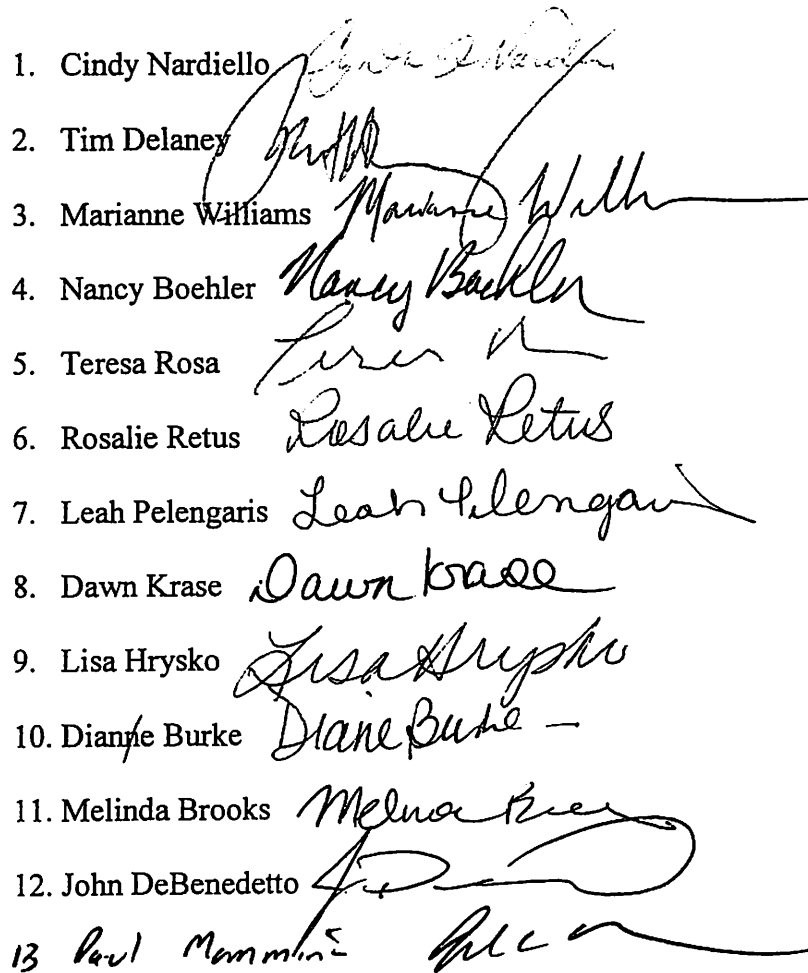 1. Cindy Nardiello
2. Tim Delaney
3. Marianne Williams Marianne Will
4. Nancy Boehler Nancy Boehler
5. Teresa Rosa
6. Rosalie Retus Rosalie Retus
7. Leah Pelengaris Leah Pelengaris
8. Dawn Krase Dawn Krase
9. Lisa Hrysko Lisa Hrysko
10. Dianne Burke Diane Burke
11. Melinda Brooks
12. John DeBenedetto
13 Paul